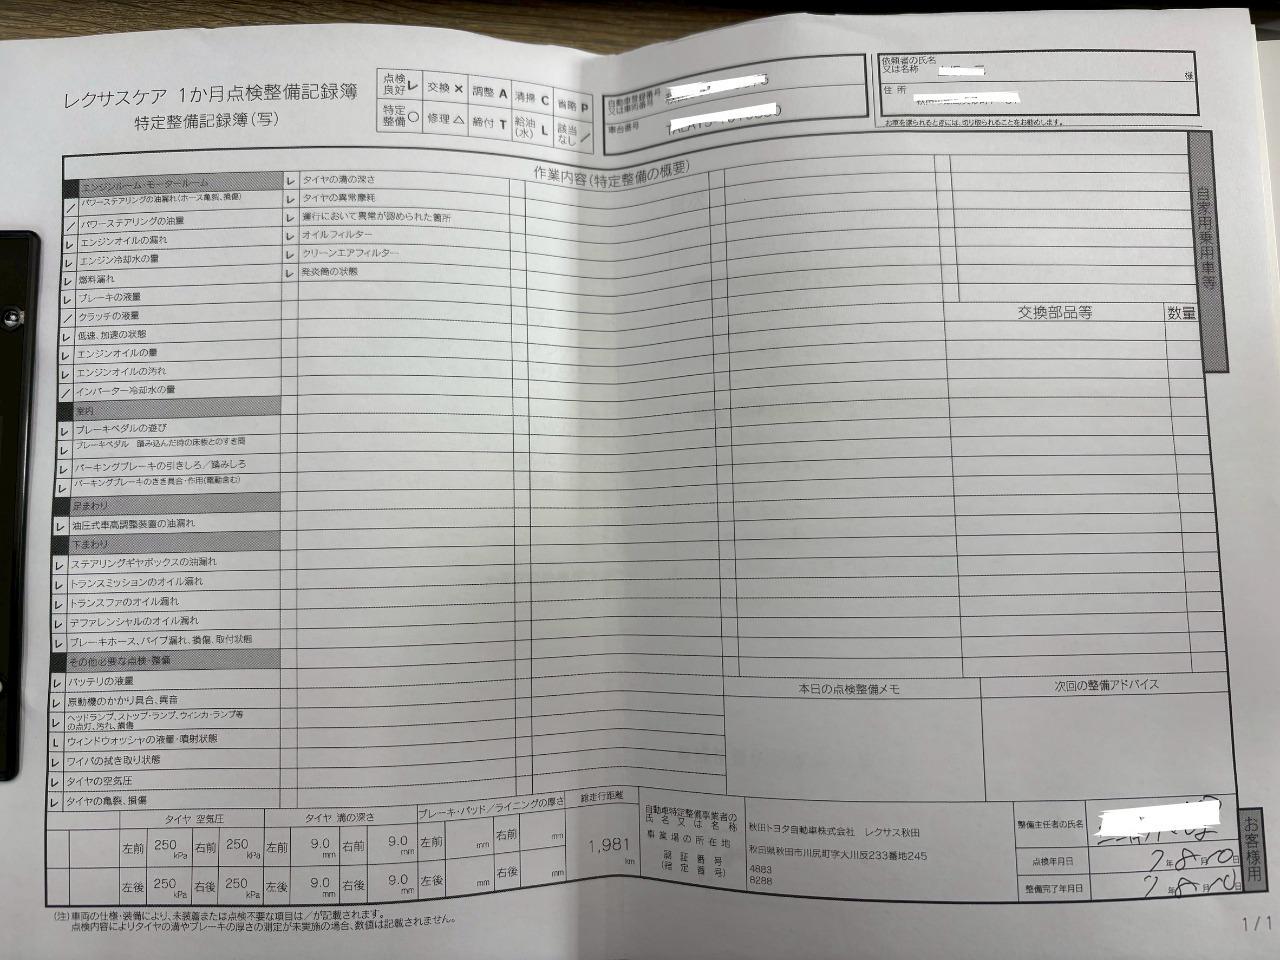 レクサスケア 1か月点検整備記録簿
特定整備記録簿(写)
点検良好 レ 交換 × 調整 A 清掃 C 省略 P
特定整備 ○ 修理 △ 締付 T 給油(水) L 該当なし /
自動車登録番号又は車両番号
車台番号
依頼者の氏名又は名称
様
住所
お車を譲られるときには、切り取られることをお勧めします。
自家用乗用車等
作業内容(特定整備の概要)
エンジンルーム・モータールーム
/ パワーステアリングの油漏れ(ホース亀裂、損傷)
/ パワーステアリングの油量
レ エンジンオイルの漏れ
レ エンジン冷却水の量
レ 燃料漏れ
レ ブレーキの液量
/ クラッチの液量
レ 低速、加速の状態
レ エンジンオイルの量
レ エンジンオイルの汚れ
/ インバーター冷却水の量
室内
レ ブレーキペダルの遊び
レ ブレーキペダル 踏み込んだ時の床板とのすき間
レ パーキングブレーキの引きしろ/踏みしろ
レ パーキングブレーキのきき具合・作用(電動含む)
足まわり
レ 油圧式車高調整装置の油漏れ
下まわり
レ ステアリングギヤボックスの油漏れ
レ トランスミッションのオイル漏れ
レ トランスファのオイル漏れ
レ デファレンシャルのオイル漏れ
レ ブレーキホース、パイプ漏れ、損傷、取付状態
その他必要な点検・整備
レ バッテリの液量
レ 原動機のかかり具合、異音
レ ヘッドランプ、ストップ・ランプ、ウィンカ・ランプ等の点灯、汚れ、損傷
L ウィンドウオッシャの液量・噴射状態
レ ワイパの拭き取り状態
レ タイヤの空気圧
レ タイヤの亀裂、損傷
レ タイヤの溝の深さ
レ タイヤの異常摩耗
レ 運行において異常が認められた箇所
レ オイルフィルター
レ クリーンエアフィルター
レ 発炎筒の状態
交換部品等 数量
本日の点検整備メモ
次回の整備アドバイス
タイヤ 空気圧
左前 250 kPa 右前 250 kPa
左後 250 kPa 右後 250 kPa
タイヤ 溝の深さ
左前 9.0 mm 右前 9.0 mm
左後 9.0 mm 右後 9.0 mm
ブレーキ・パッド/ライニングの厚さ
左前 mm 右前 mm
左後 mm 右後 mm
総走行距離
1,981 km
自動車特定整備事業者の氏名又は名称
秋田トヨタ自動車株式会社 レクサス秋田
事業場の所在地
秋田県秋田市川尻町字大川反233番地245
認証番号(指定番号)
4883
8288
整備主任者の氏名
点検年月日 7年 8月 10日
整備完了年月日 7年 8月 10日
お客様用
(注)車両の仕様・装備により、未装着または点検不要な項目は/が記載されます。
点検内容によりタイヤの溝やブレーキの厚さの測定が未実施の場合、数値は記載されません。
1/1